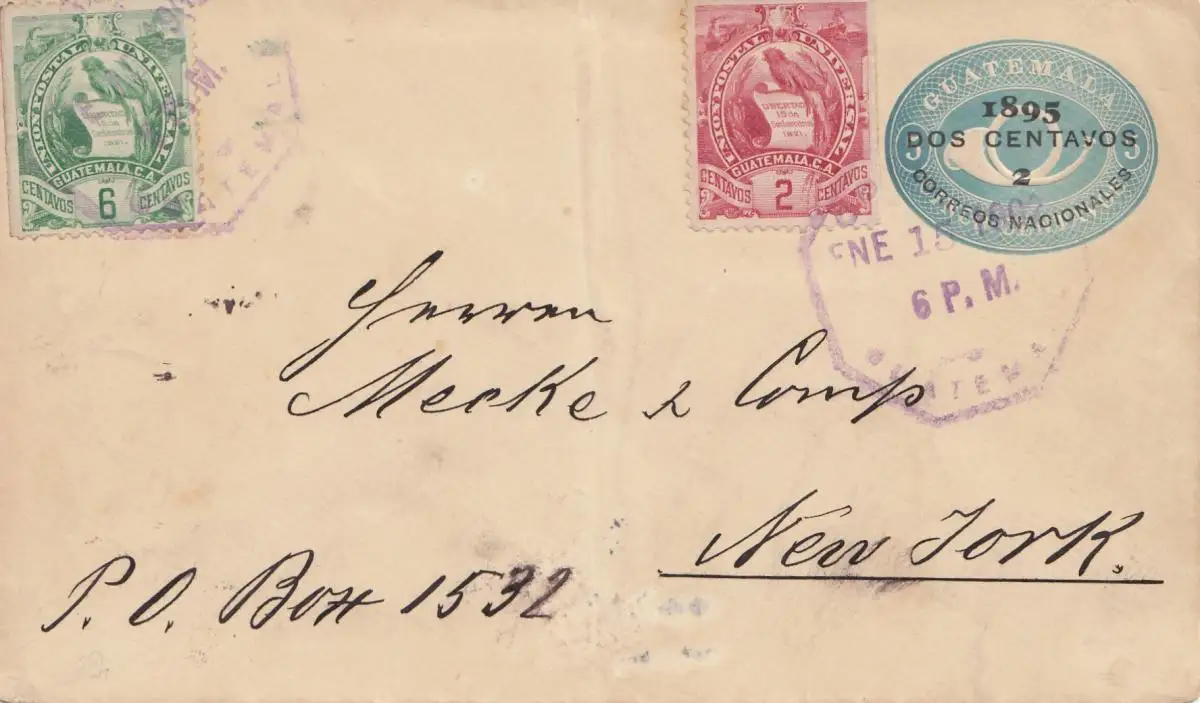 UNION POSTAL UNIVERSAL
LIBERTAD
15 de
Setiembre
1821.
GUATEMALA, C.A.
CENTAVOS 6 CENTAVOS
UNION POSTAL UNIVERSAL
LIBERTAD
15 de
Setiembre
1821.
GUATEMALA, C.A.
CENTAVOS 2 CENTAVOS
GUATEMALA
1895
DOS CENTAVOS
5 5
2
CORREOS NACIONALES
ENE 15
6 P. M.
Herren
Mecke & Comp
New York.
P. O. Box 1532